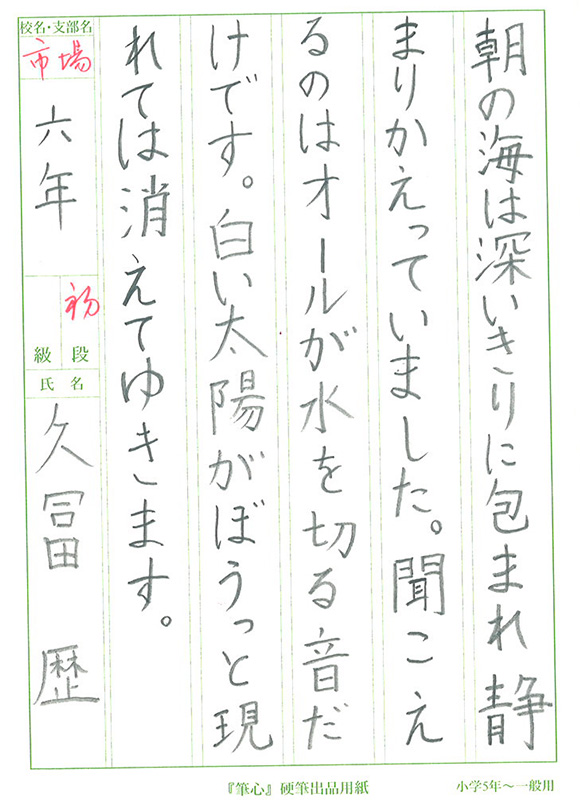 朝の海は深いきりに包まれ静
まりかえっていました。聞こえ
るのはオールが水を切る音だ
けです。白い太陽がぼうっと現
れては消えてゆきます。
校名・支部名
市場
六年
初
級 段
氏 名
久冨 歴
『筆心』硬筆出品用紙
小学5年～一般用